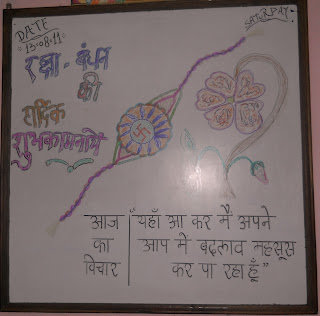 DATE
13-08-11
SATURDAY
रक्षा-बंधन
की
हार्दिक
शुभकामनायें
आज "यहाँ आ कर मैं अपने
का आप मे बदलाव महसूस
विचार कर पा रहा हूँ"